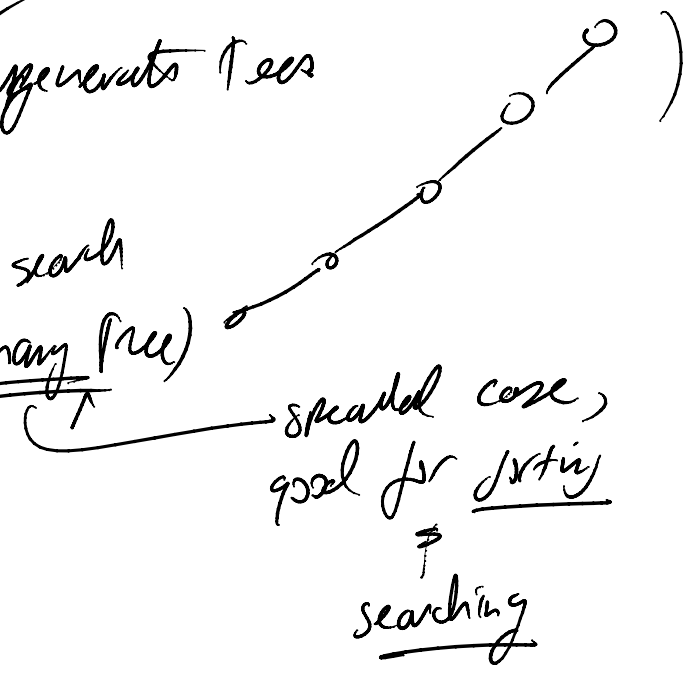 generats Trees
search
nary Tree)
special case,
good for sorting
searching